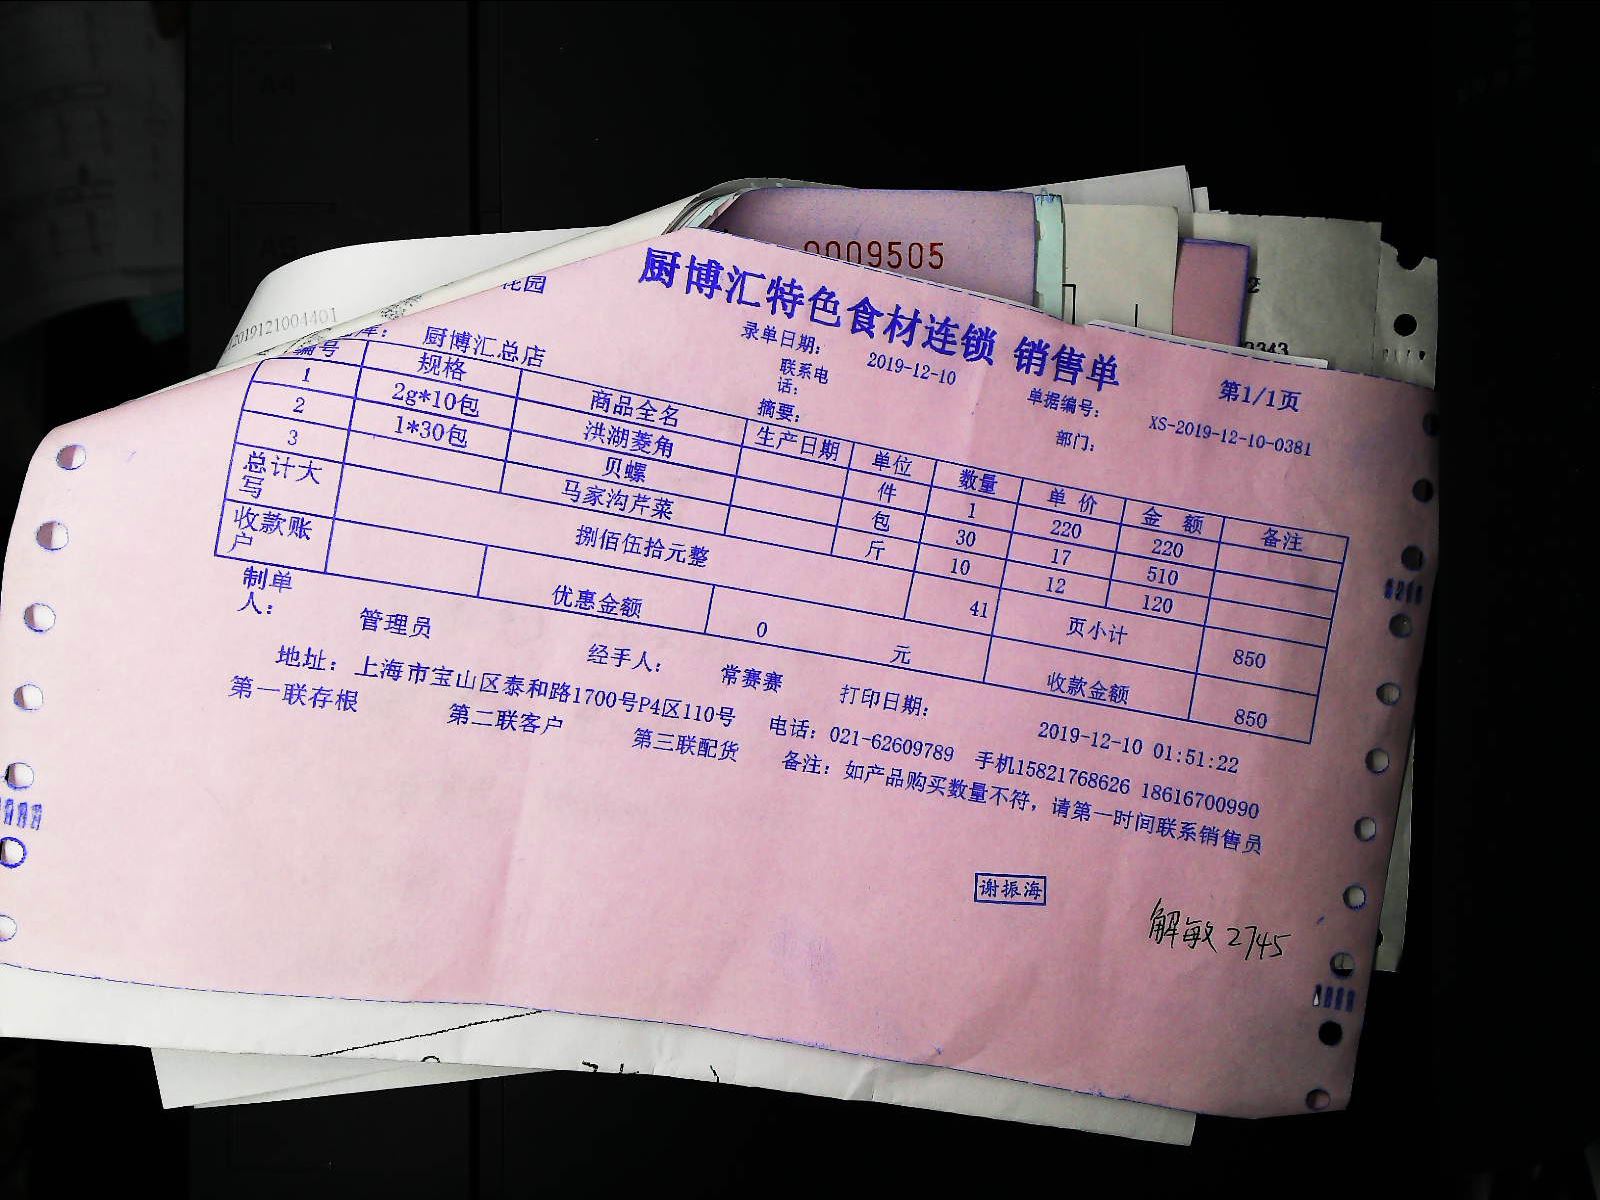 A4
A5
0009505
2019121004401
花园
厨博汇特色食材连锁 销售单
第1/1页
库： 厨博汇总店
录单日期： 2019-12-10
单据编号： XS-2019-12-10-0381
联系电话：
部门：
摘要：
编号 规格 商品全名 生产日期 单位 数量 单价 金额 备注
1 2g*10包 洪湖菱角 件 1 220 220
2 1*30包 贝螺 包 30 17 510
3 马家沟芹菜 斤 10 12 120
总计大写 捌佰伍拾元整 41 页小计 850
收款账户 优惠金额 0 元 收款金额 850
制单人： 管理员 经手人： 常赛赛 打印日期： 2019-12-10 01:51:22
地址： 上海市宝山区泰和路1700号P4区110号 电话：021-62609789 手机15821768626 18616700990
第一联存根 第二联客户 第三联配货 备注：如产品购买数量不符，请第一时间联系销售员
谢振海
解敏 2745